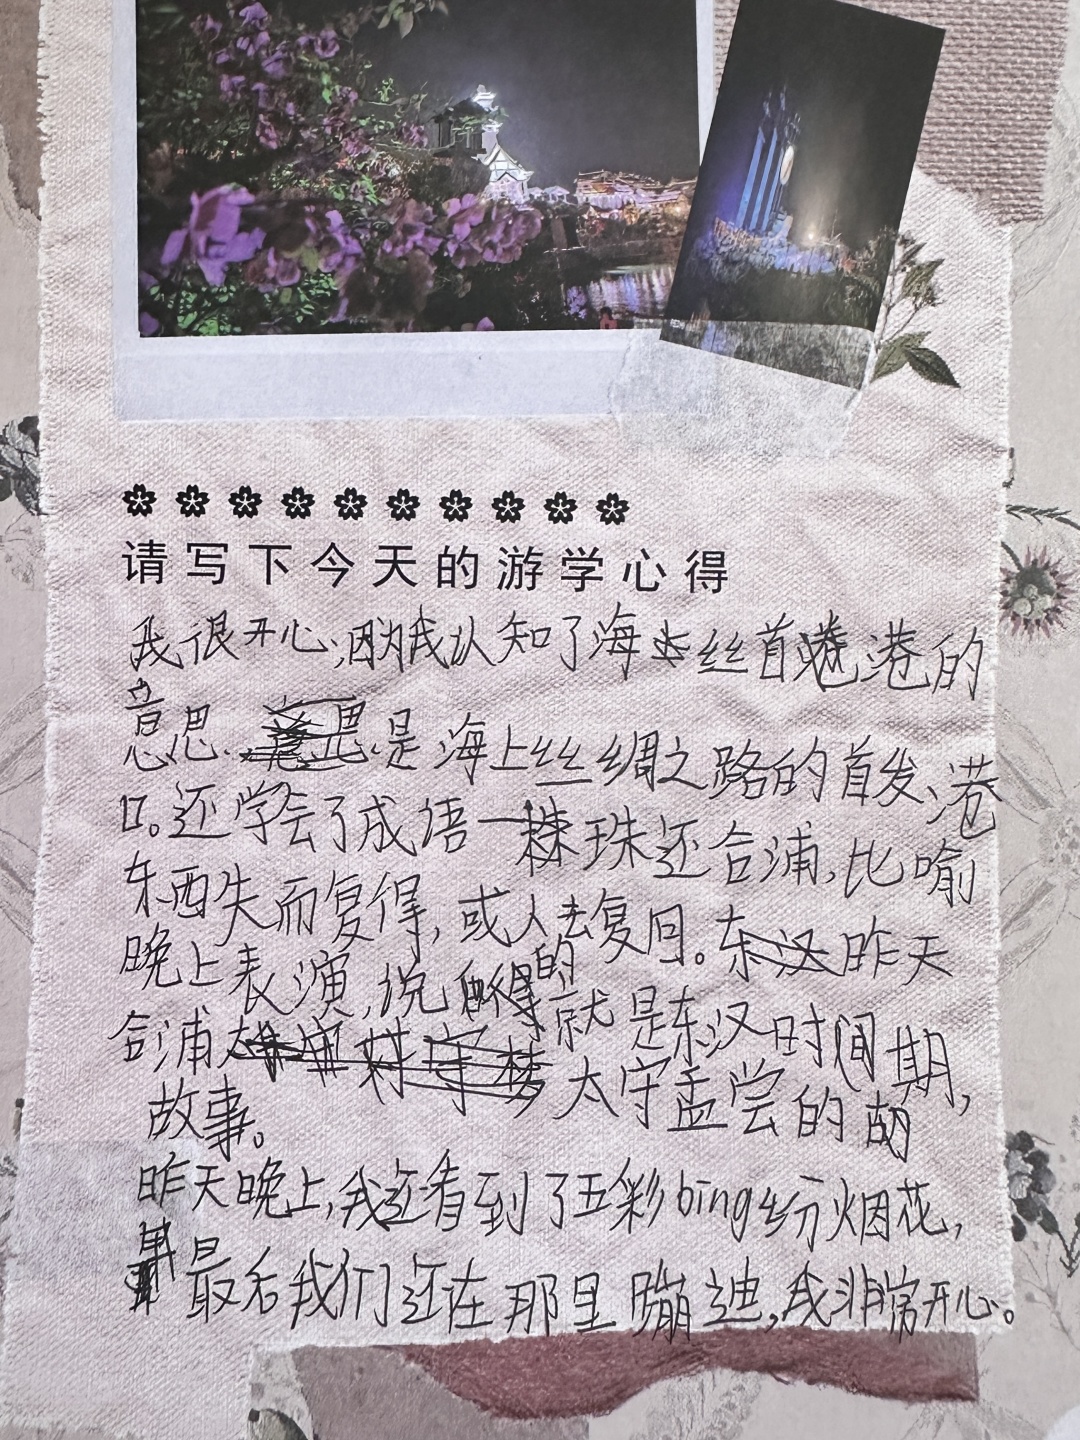 请写下今天的游学心得
我很开心,因为我认知了海丝首港的
意思.是海上丝绸之路的首发、港
口。还学会了成语一珠还合浦,比喻
东西失而复得,或人去复回。昨天
晚上表演,说的就是东汉时期,
合浦太守孟尝的
故事。
昨天晚上,我还看到了五彩bīng纷烟花,
最后我们还在那里蹦迪,我非常开心。